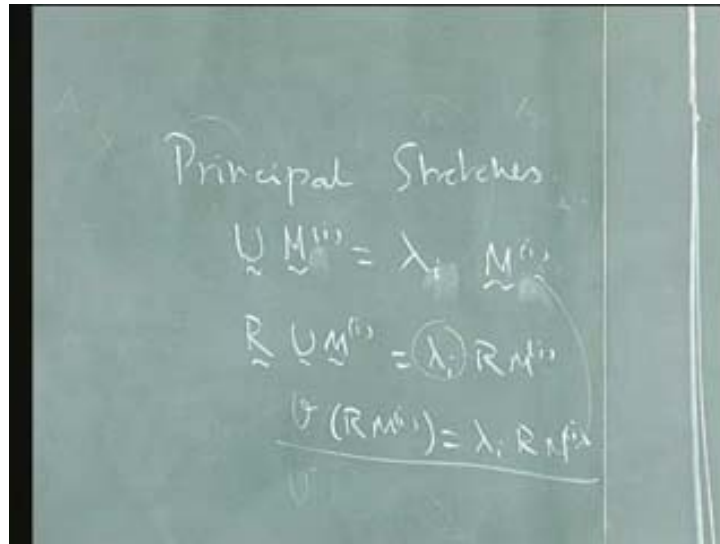 Principal Stretches
U M⁽ⁱ⁾ = λᵢ M⁽ⁱ⁾
R U M⁽ⁱ⁾ = λᵢ R M⁽ⁱ⁾
V (R M⁽ⁱ⁾) = λᵢ R M⁽ⁱ⁾